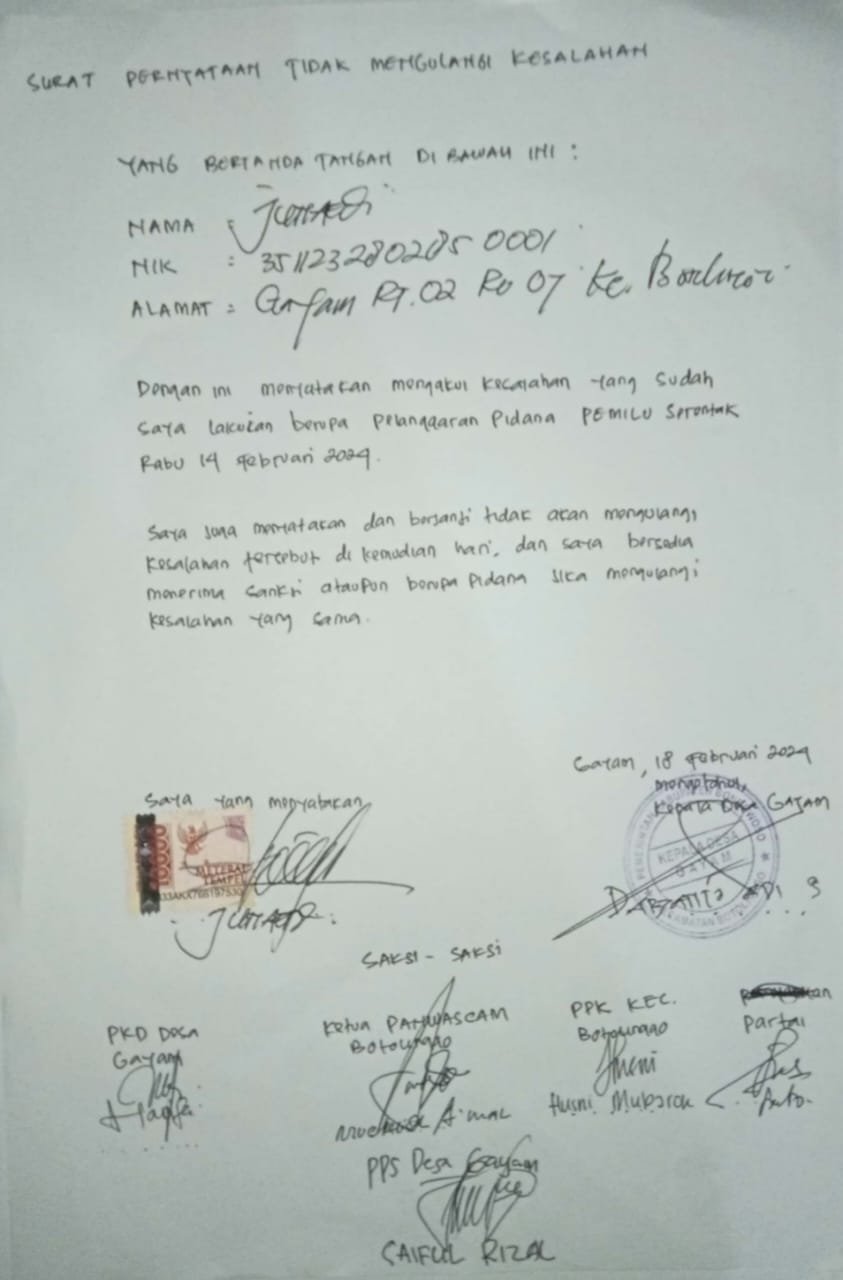 SURAT PERNYATAAN TIDAK MENGULANGI KESALAHAN
YANG BERTANDA TANGAN DI BAWAH INI :
NAMA : JUNAEDI
NIK : 3511232802850001
ALAMAT : Gayam RT.02 RW 07 Kc.
Dengan ini menyatakan mengakui kesalahan yang sudah
saya lakukan berupa pelanggaran pidana PEMILU Serentak
Rabu 14 Februari 2024.
Saya juga menyatakan dan berjanji tidak akan mengulangi
kesalahan tersebut di kemudian hari, dan saya bersedia
menerima sanksi ataupun berupa pidana jika mengulangi
kesalahan yang sama.
Gayam, 18 Februari 2024
Saya yang menyatakan
mengetahui,
Kepala Desa GAYAM
10000
METERAI
TEMPEL
KEPALA DESA
GAYAM
SAKSI - SAKSI
PKD Desa
Gayam
Ketua PANWASCAM
Botolinggo
PPK KEC.
Botolinggo
Partai
Husni Mubarok
PPS Desa Gayam
SAIFUL RIZAL